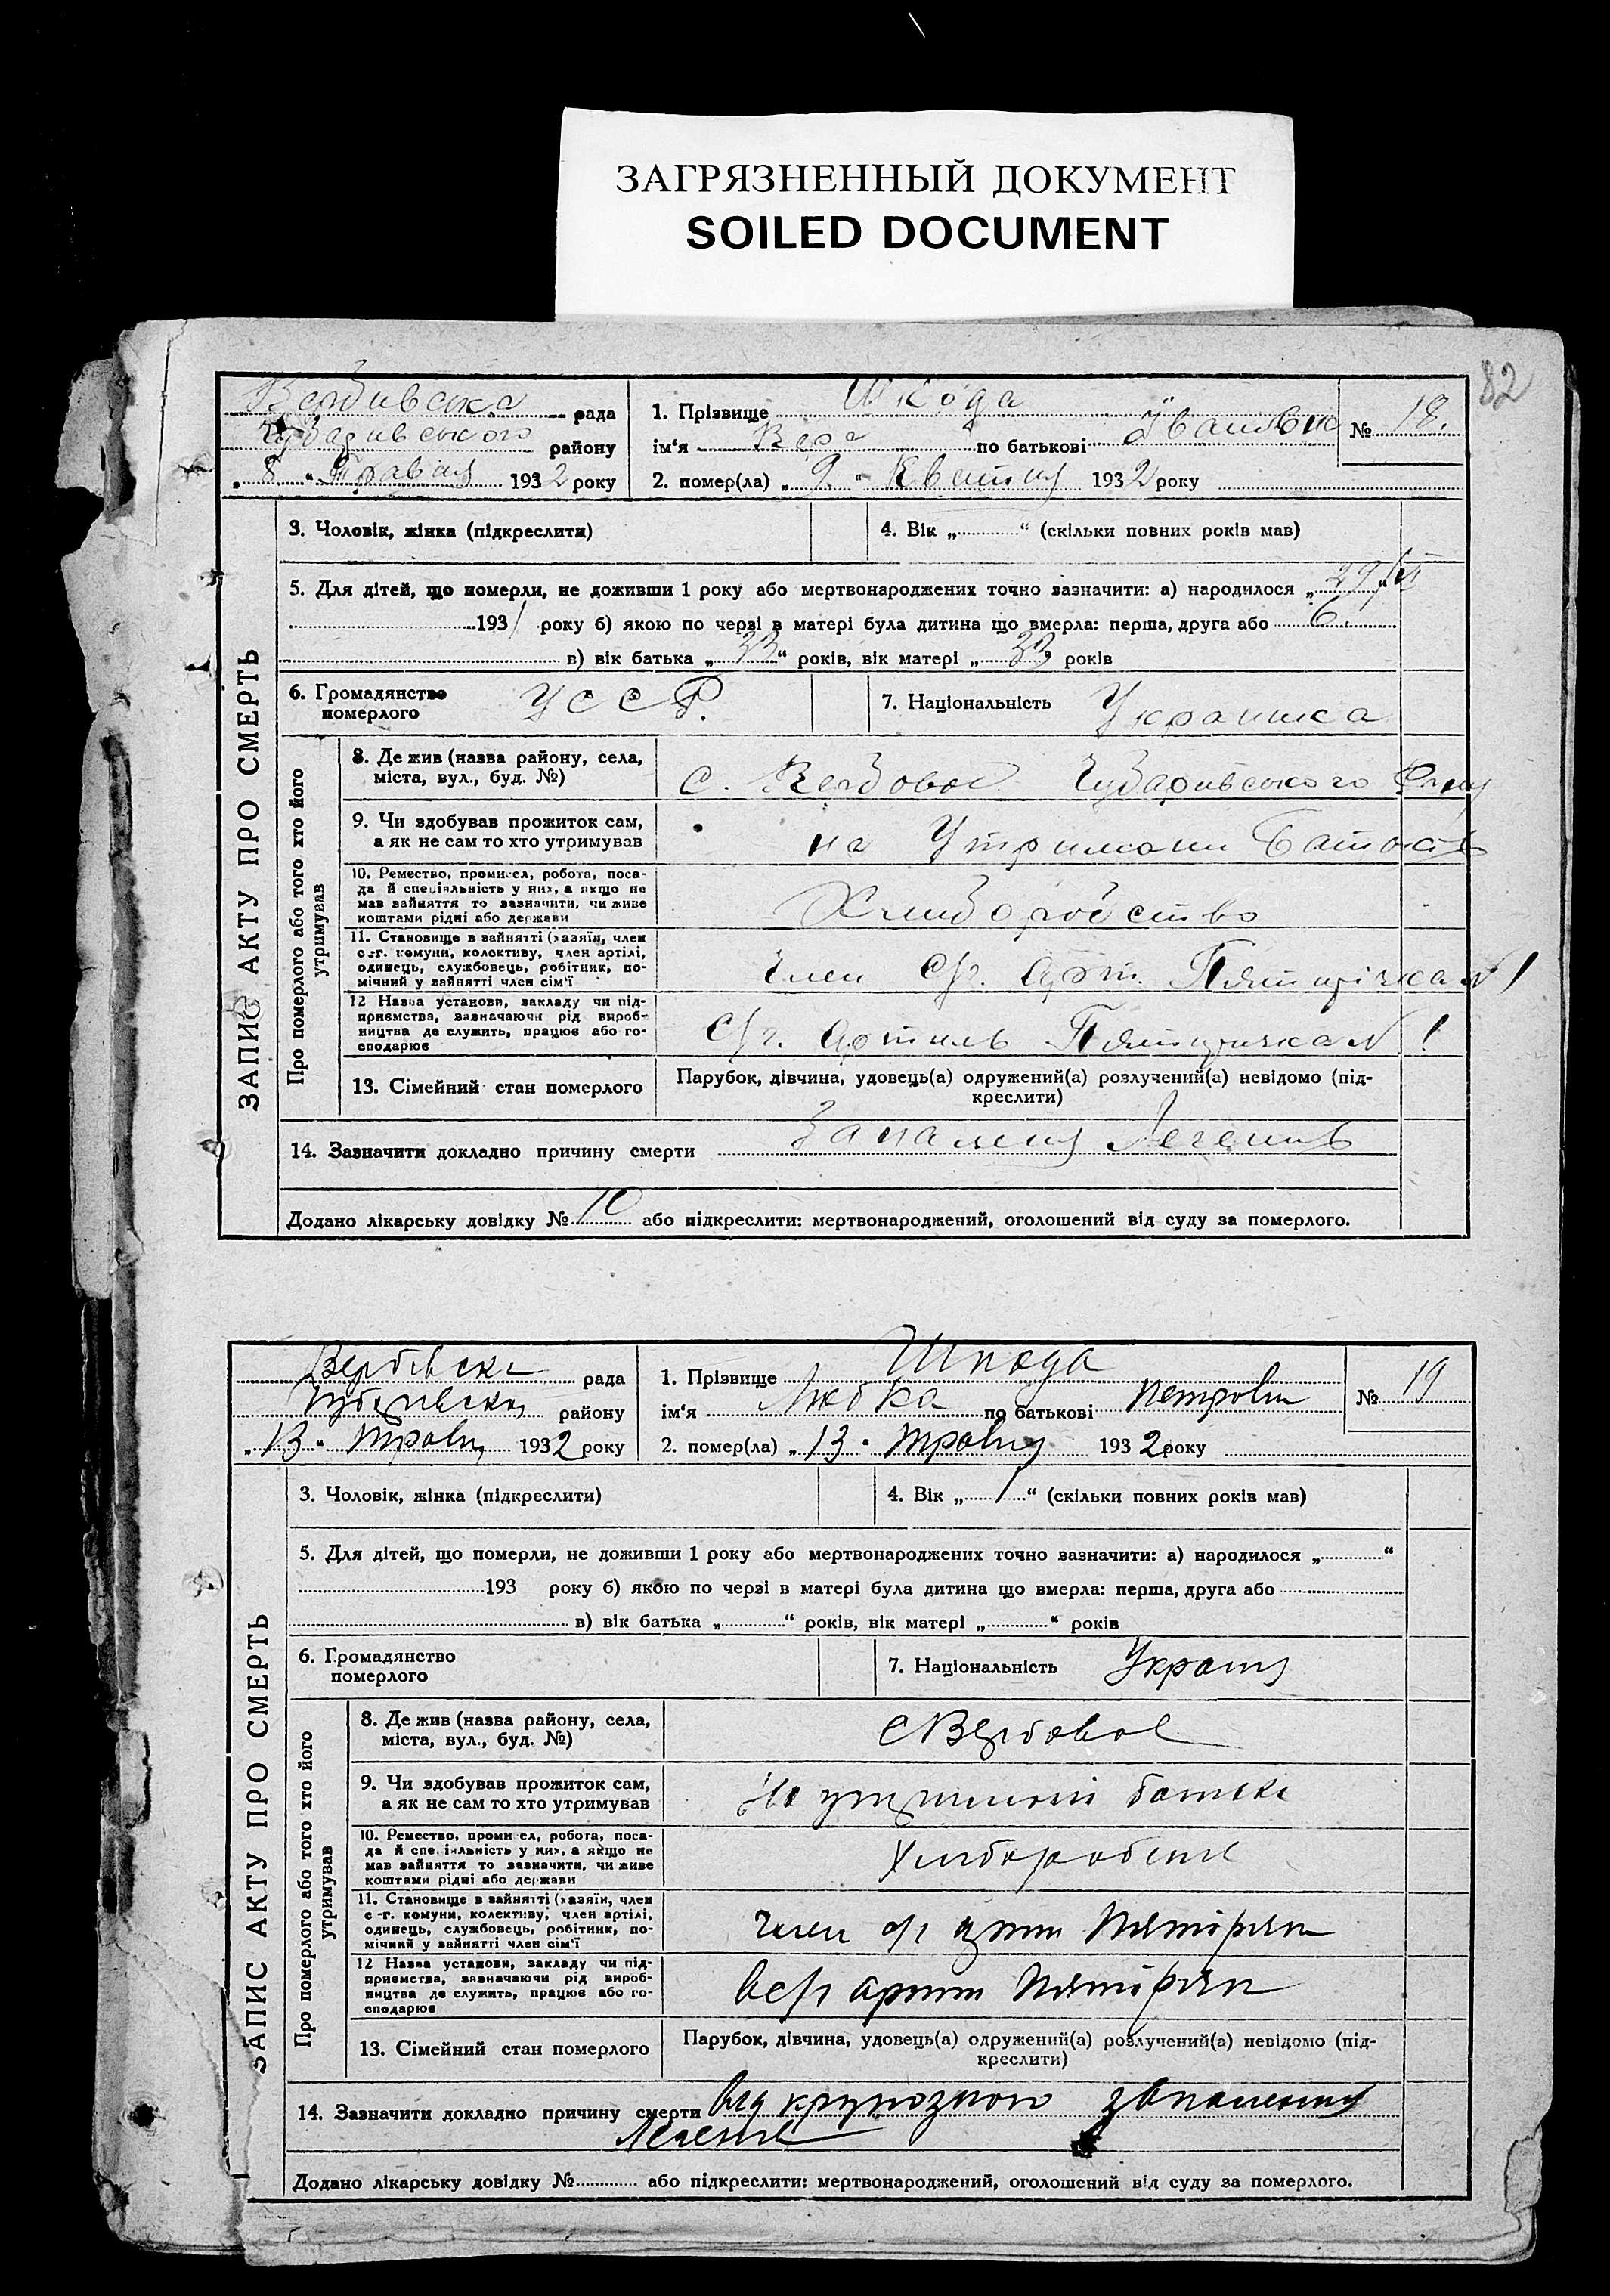 ЗАГРЯЗНЕННЫЙ ДОКУМЕНТ
SOILED DOCUMENT
82
ЗАПИС АКТУ ПРО СМЕРТЬ
Вербивська рада
Чубаривського району
„ 8 “ Травня 1932 року
1. Прізвище Шкода
ім'я Вера по батькові Ивановна
№ 18.
2. помер(ла) „ 9 “ Квитня 1932 року
3. Чоловік, жінка (підкреслити)
4. Вік „ “ (скільки повних років мав)
5. Для дітей, що померли, не доживши 1 року або мертвонароджених точно зазначити: а) народилося „ 29
1931 року б) якою по черзі в матері була дитина що вмерла: перша, друга або 6.
в) вік батька „ 33 “ років, вік матері „ 33 “ років
6. Громадянство
померлого
УССР.
7. Національність Украинка
Про померлого або того хто його
утримував
8. Де жив (назва району, села,
міста, вул., буд. №)
с. Вербовое Чубаривського
9. Чи здобував прожиток сам,
а як не сам то хто утримував
на Утримани Батькив
10. Ремество, промисел, робота, поса-
да й спеціяльність у них, а якщо не
мав зайняття то зазначити, чи живе
коштами рідні або держави
Хлиборобство
11. Становище в зайнятті (хазяїн, член
с.-г. комуни, колективу, член артілі,
одинець, службовець, робітник, по-
мічний у зайнятті член сім'ї
Член С/г. Арт. Пятирічка № 1
12 Назва установи, закладу чи під-
приємства, зазначаючи рід вироб-
ництва де служить, працює або го-
сподарює
С/г. Артиль Пятиричка № 1
13. Сімейний стан померлого
Парубок, дівчина, удовець(а) одружений(а) розлучений(а) невідомо (під-
креслити)
14. Зазначити докладно причину смерти Запаления Легенив
Додано лікарську довідку № 10 або підкреслити: мертвонароджений, оголошений від суду за померлого.
ЗАПИС АКТУ ПРО СМЕРТЬ
Вербівська рада
району
„ 13 “ травня 1932 року
1. Прізвище Шкода
ім'я Любка по батькові Петровна
№ 19
2. помер(ла) „ 13 “ травня 1932 року
3. Чоловік, жінка (підкреслити)
4. Вік „ 1 “ (скільки повних років мав)
5. Для дітей, що померли, не доживши 1 року або мертвонароджених точно зазначити: а) народилося „ “
193 року б) якою по черзі в матері була дитина що вмерла: перша, друга або
в) вік батька „ “ років, вік матері „ “ років
6. Громадянство
померлого
7. Національність
Про померлого або того хто його
утримував
8. Де жив (назва району, села,
міста, вул., буд. №)
с Вербовое
9. Чи здобував прожиток сам,
а як не сам то хто утримував
На утриманні батька
10. Ремество, промисел, робота, поса-
да й спеціяльність у них, а якщо не
мав зайняття то зазначити, чи живе
коштами рідні або держави
11. Становище в зайнятті (хазяїн, член
с.-г. комуни, колективу, член артілі,
одинець, службовець, робітник, по-
мічний у зайнятті член сім'ї
член с/г
12 Назва установи, закладу чи під-
приємства, зазначаючи рід вироб-
ництва де служить, працює або го-
сподарює
в с/г
13. Сімейний стан померлого
Парубок, дівчина, удовець(а) одружений(а) розлучений(а) невідомо (під-
креслити)
14. Зазначити докладно причину смерти Від крупозного запалення
Легенів
Додано лікарську довідку № або підкреслити: мертвонароджений, оголошений від суду за померлого.